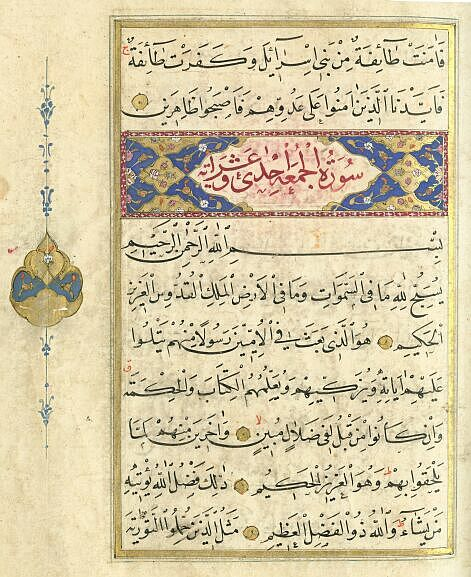 فَاٰمَنَتْ طَآئِفَةٌ مِنْ بَنٖى اِسْرَآئٖلَ وَكَفَرَتْ طَآئِفَةٌ
فَاَيَّدْنَا الَّذٖينَ اٰمَنُوا عَلٰى عَدُوِّهِمْ فَاَصْبَحُوا ظَاهِرٖينَ
سورة الجمعة احدى وعشر اٰية
بِسْمِ اللّٰهِ الرَّحْمٰنِ الرَّحٖيمِ
يُسَبِّحُ لِلّٰهِ مَا فِى السَّمٰوَاتِ وَمَا فِى الْاَرْضِ الْمَلِكِ الْقُدُّوسِ الْعَزٖيزِ
الْحَكٖيمِ هُوَ الَّذٖى بَعَثَ فِى الْاُمِّيّٖنَ رَسُولًا مِنْهُمْ يَتْلُوا
عَلَيْهِمْ اٰيَاتِهٖ وَيُزَكّٖيهِمْ وَيُعَلِّمُهُمُ الْكِتَابَ وَالْحِكْمَةَ
وَاِنْ كَانُوا مِنْ قَبْلُ لَفٖى ضَلَالٍ مُبٖينٍ وَاٰخَرٖينَ مِنْهُمْ لَمَّا
يَلْحَقُوا بِهِمْ وَهُوَ الْعَزٖيزُ الْحَكٖيمُ ذٰلِكَ فَضْلُ اللّٰهِ يُؤْتٖيهِ
مَنْ يَشَآءُ وَاللّٰهُ ذُو الْفَضْلِ الْعَظٖيمِ مَثَلُ الَّذٖينَ حُمِّلُوا التَّوْرٰيةَ